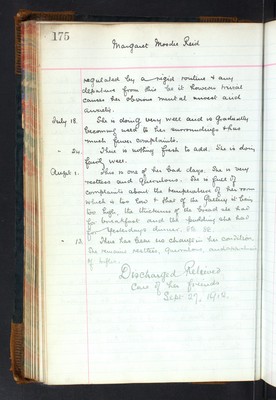 175
Margaret Moodie Reid
regulated by a rigid routine & any
departure from this be it however trivial
causes her obvious mental unrest and
anxiety.
July 18. She is doing very well and is gradually
becoming used to her surroundings & has
much fewer complaints.
" 24. There is nothing fresh to add. She is doing
fairly well.
Augst 1. This is one of her bad days. She is very
restless and querulous. She is full of
complaints about the temperature of her room
which is too low & that of the Gallery it being
too high, the thickness of the bread she had
for breakfast and the pudding she had
for yesterdays dinner. etc. etc.
" 13. There has been no change in her condition
She remains restless, querulous and
of before.
Discharged Relieved
Care of her friends
Sept. 27, 1912.